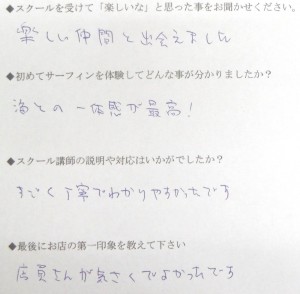 ◆スクールを受けて「楽しいな」と思った事をお聞かせください。
楽しい仲間と出会えました
◆初めてサーフィンを体験してどんな事が分かりましたか？
海との一体感が最高！
◆スクール講師の説明や対応はいかがでしたか？
すごく丁寧でわかりやすかったです
◆最後にお店の第一印象を教えて下さい
店員さんが気さくでよかったです